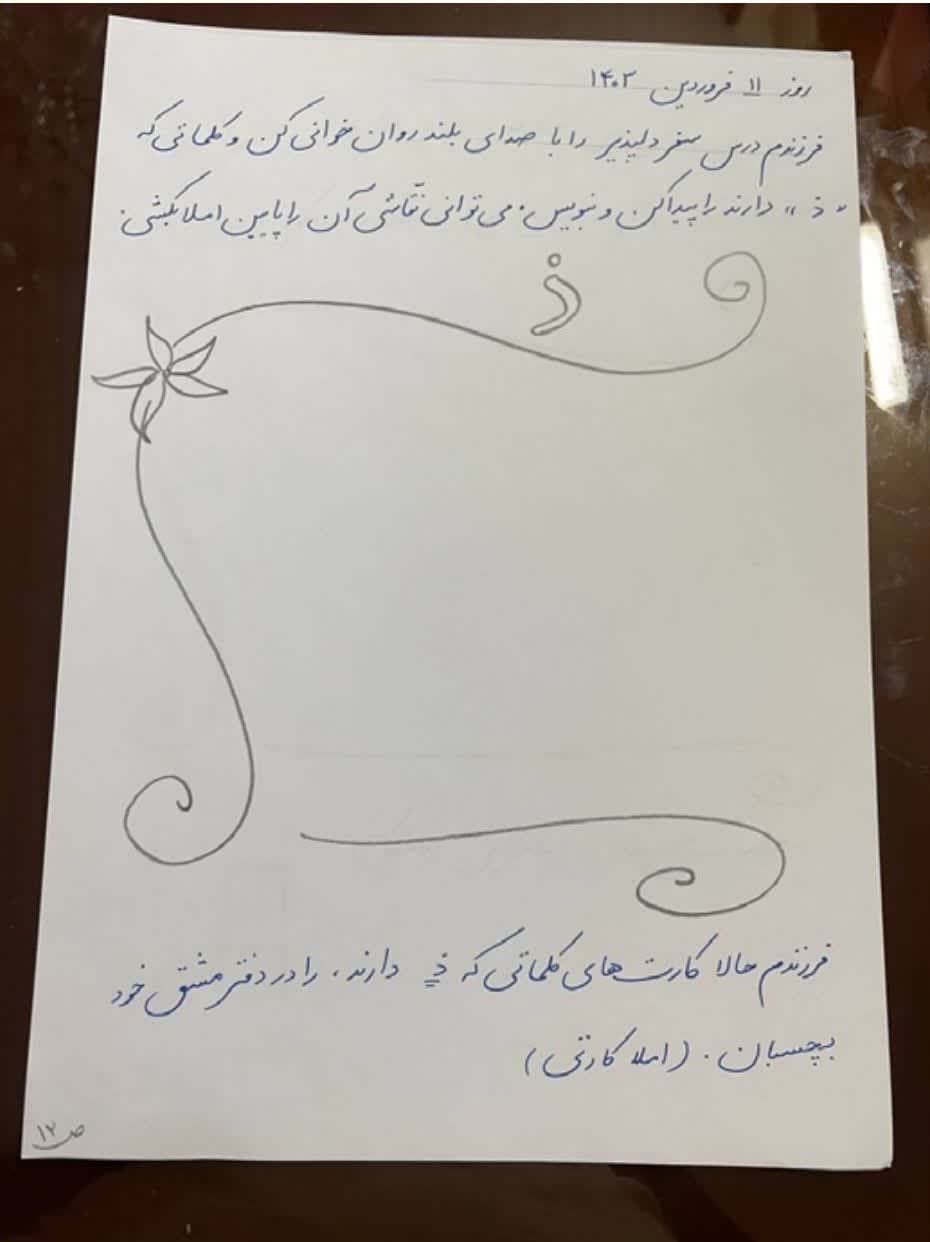 روز ۱۱ فروردین ۱۴۰۳
فرزندم درس سفر دلپذیر را با صدای بلند روان خوانی کن و کلماتی که
"ذ" دارند را پیدا کن و بنویس. می توانی نقّاشی آن را پایین املا بکشی.
ذ
فرزندم حالا کارت های کلماتی که ذ دارند، را در دفتر مشق خود
بچسبان. (املا کارتی)
ص ۱۲